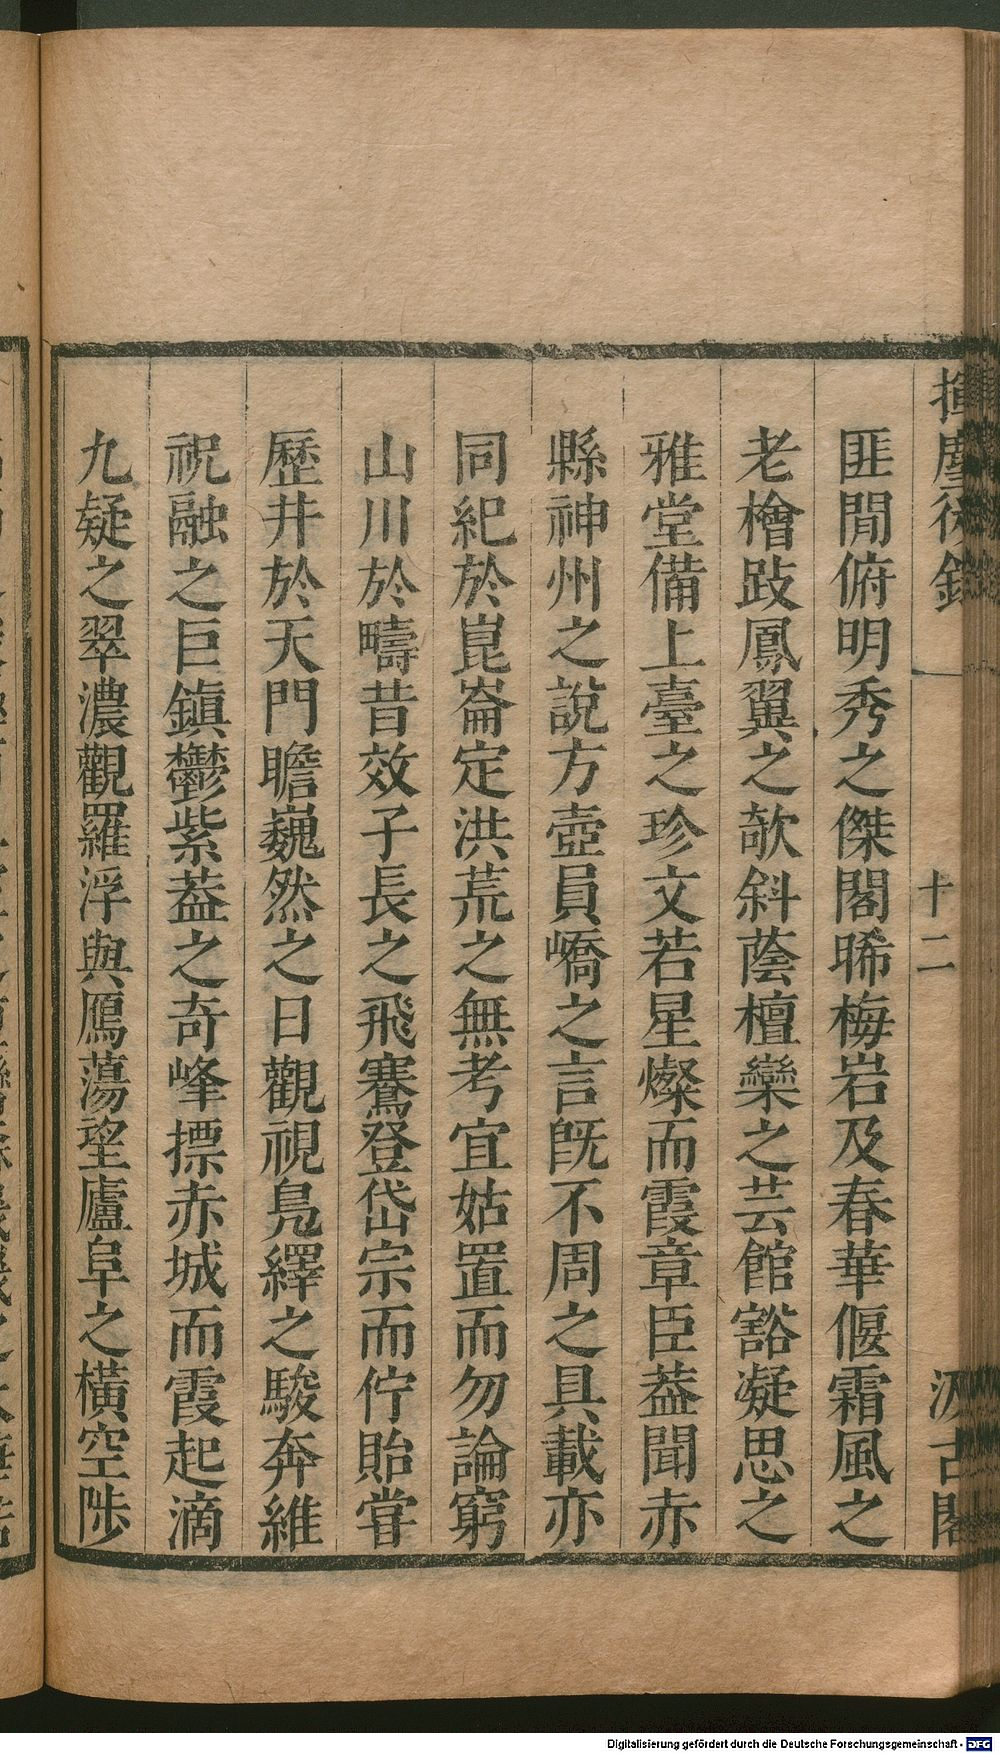 揮塵後錄
十二
汲古閣
匪閒俯明秀之傑閣晞梅岩及春華偃霜風之
老檜跂鳳翼之欹斜蔭檀欒之芸館豁凝思之
雅堂備上臺之珍文若星燦而霞章臣葢聞赤
縣神州之說方壺員嶠之言旣不周之具載亦
同紀於崑崙定洪荒之無考宜姑置而勿論窮
山川於疇昔效子長之飛騫登岱宗而佇貽甞
歷井於天門瞻巍然之日觀視鳧繹之駿奔維
祝融之巨鎮鬱紫葢之奇峰摽赤城而霞起滴
九疑之翠濃觀羅浮與鴈蕩望廬阜之橫空陟
Digitalisierung gefördert durch die Deutsche Forschungsgemeinschaft - DFG